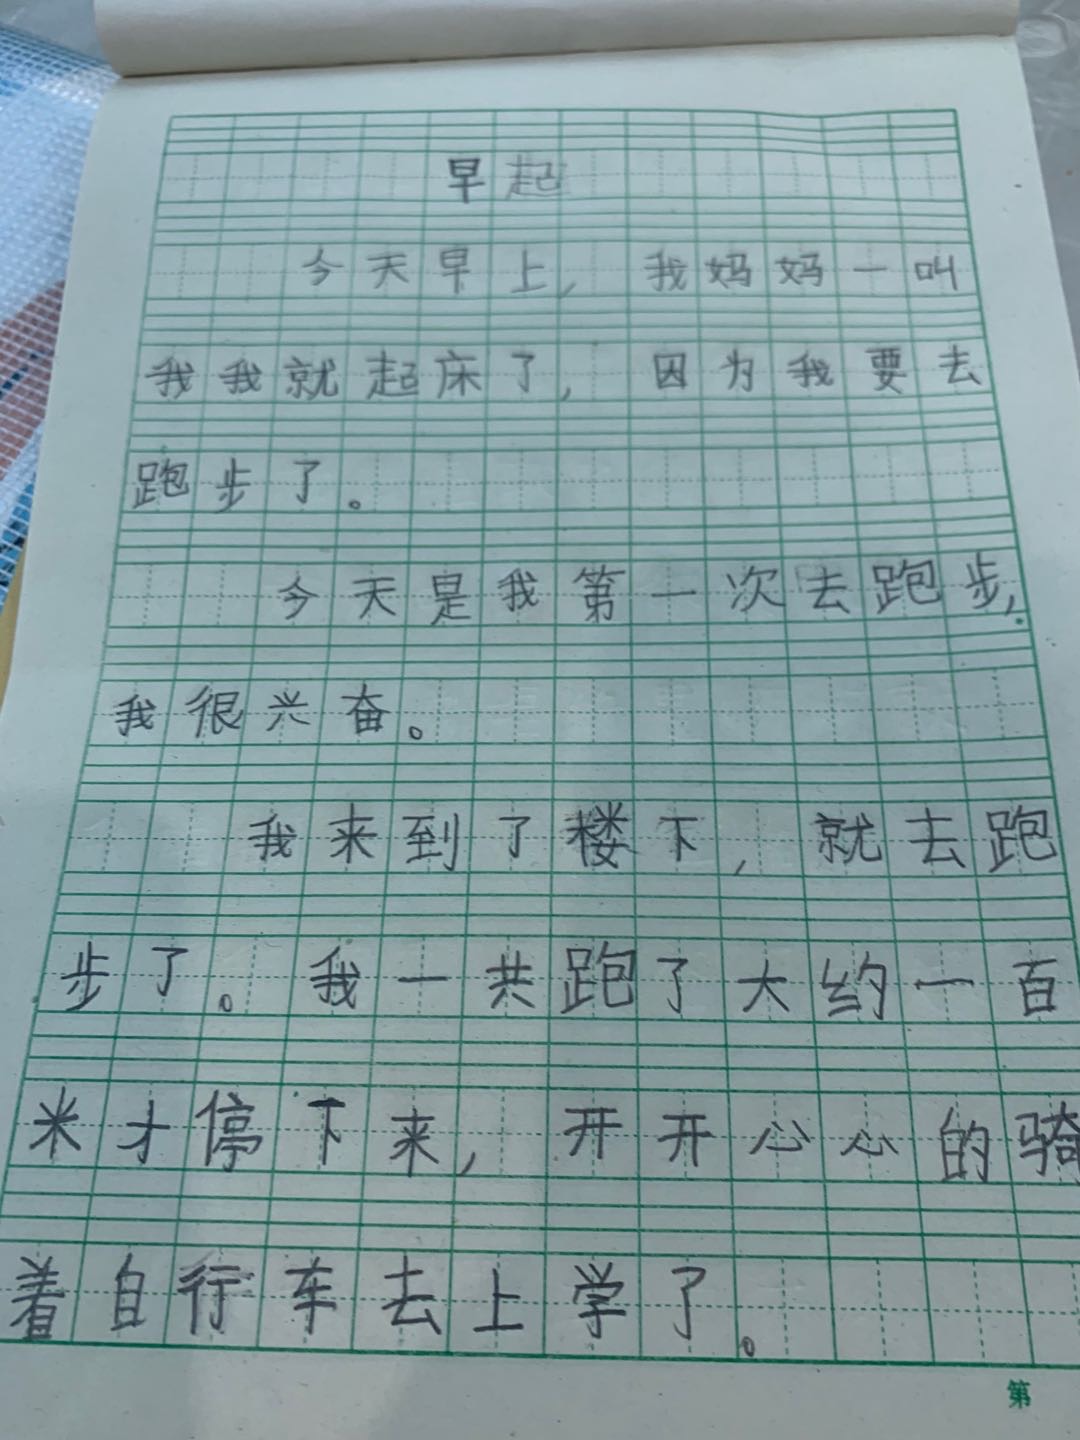 早起
今天早上,我妈妈一叫
我我就起床了,因为我要去
跑步了。
今天是我第一次去跑步,
我很兴奋。
我来到了楼下,就去跑
步了。我一共跑了大约一百
米才停下来,开开心心的骑
着自行车去上学了。
第